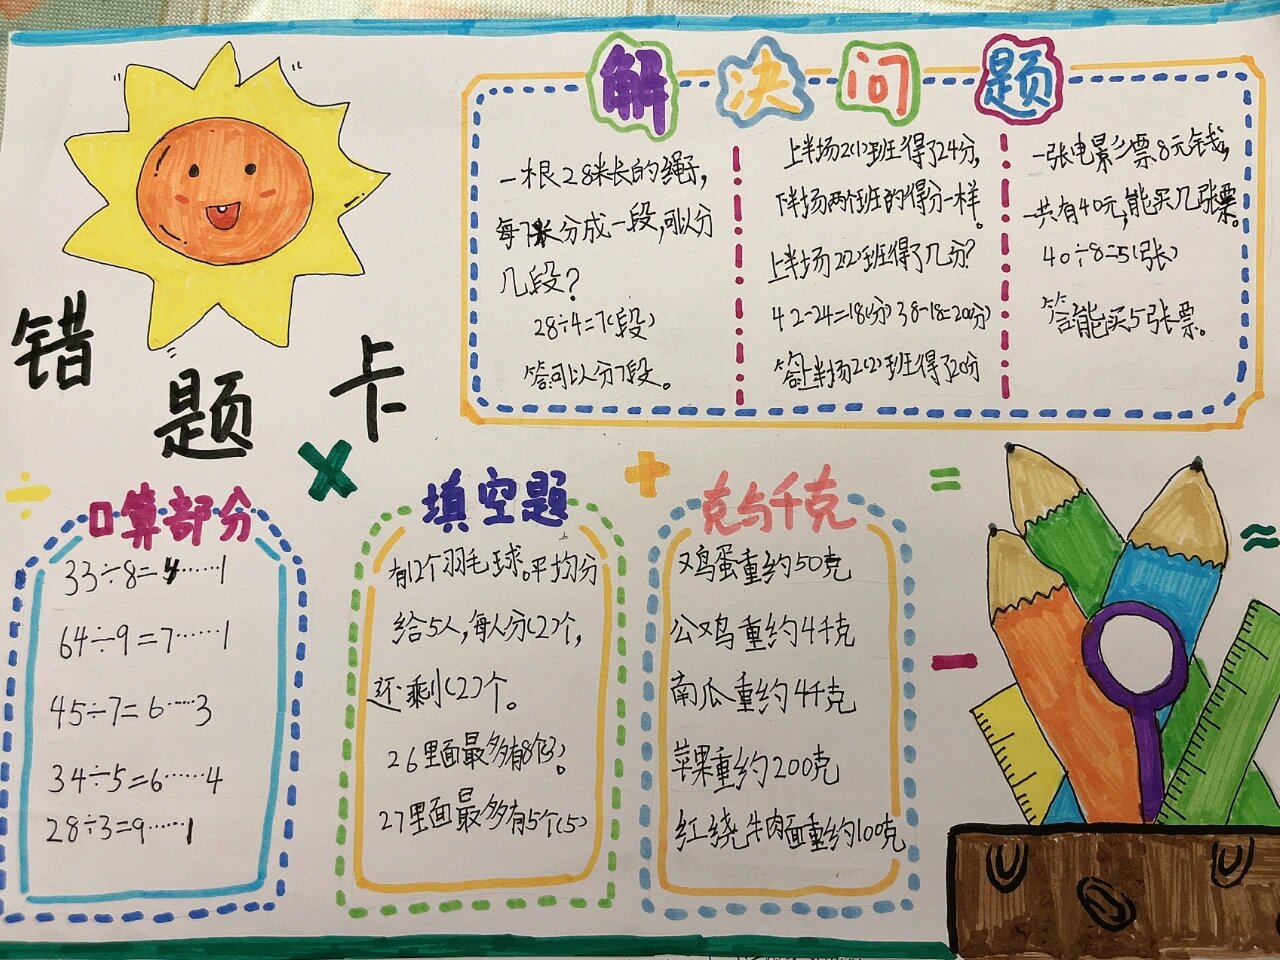 错
题
卡
解决问题
一根28米长的绳子,
每7米分成一段,可以分
几段?
28÷4=7(段)
答:可以分7段。
上半场2(1)班得了24分,
下半场两个班的得分一样。
上半场2(2)班得了几分?
42-24=18(分) 38-18=20(分)
答:上半场2(2)班得了20分
一张电影票8元钱,
一共有40元,能买几张票。
40÷8=5(张)
答:能买5张票。
÷
×
+
=
-
≈
口算部分
33÷8=4……1
64÷9=7……1
45÷7=6……3
34÷5=6……4
28÷3=9……1
填空题
有12个羽毛球。平均分
给5人,每人分(2)个,
还剩(2)个。
26里面最多有8个(3)。
27里面最多有5个(5)
克与千克
鸡蛋重约50克
公鸡重约4千克
南瓜重约4千克
苹果重约200克
红烧牛肉面重约100克